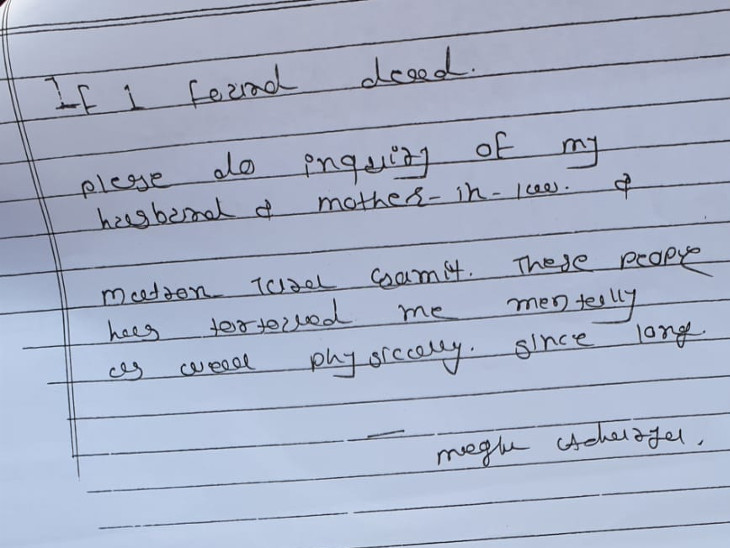 If I found dead.
please do inquiry of my
husband & mother-in-law. &
These people
has tortured me mentally
as well physically. since long.
— megha